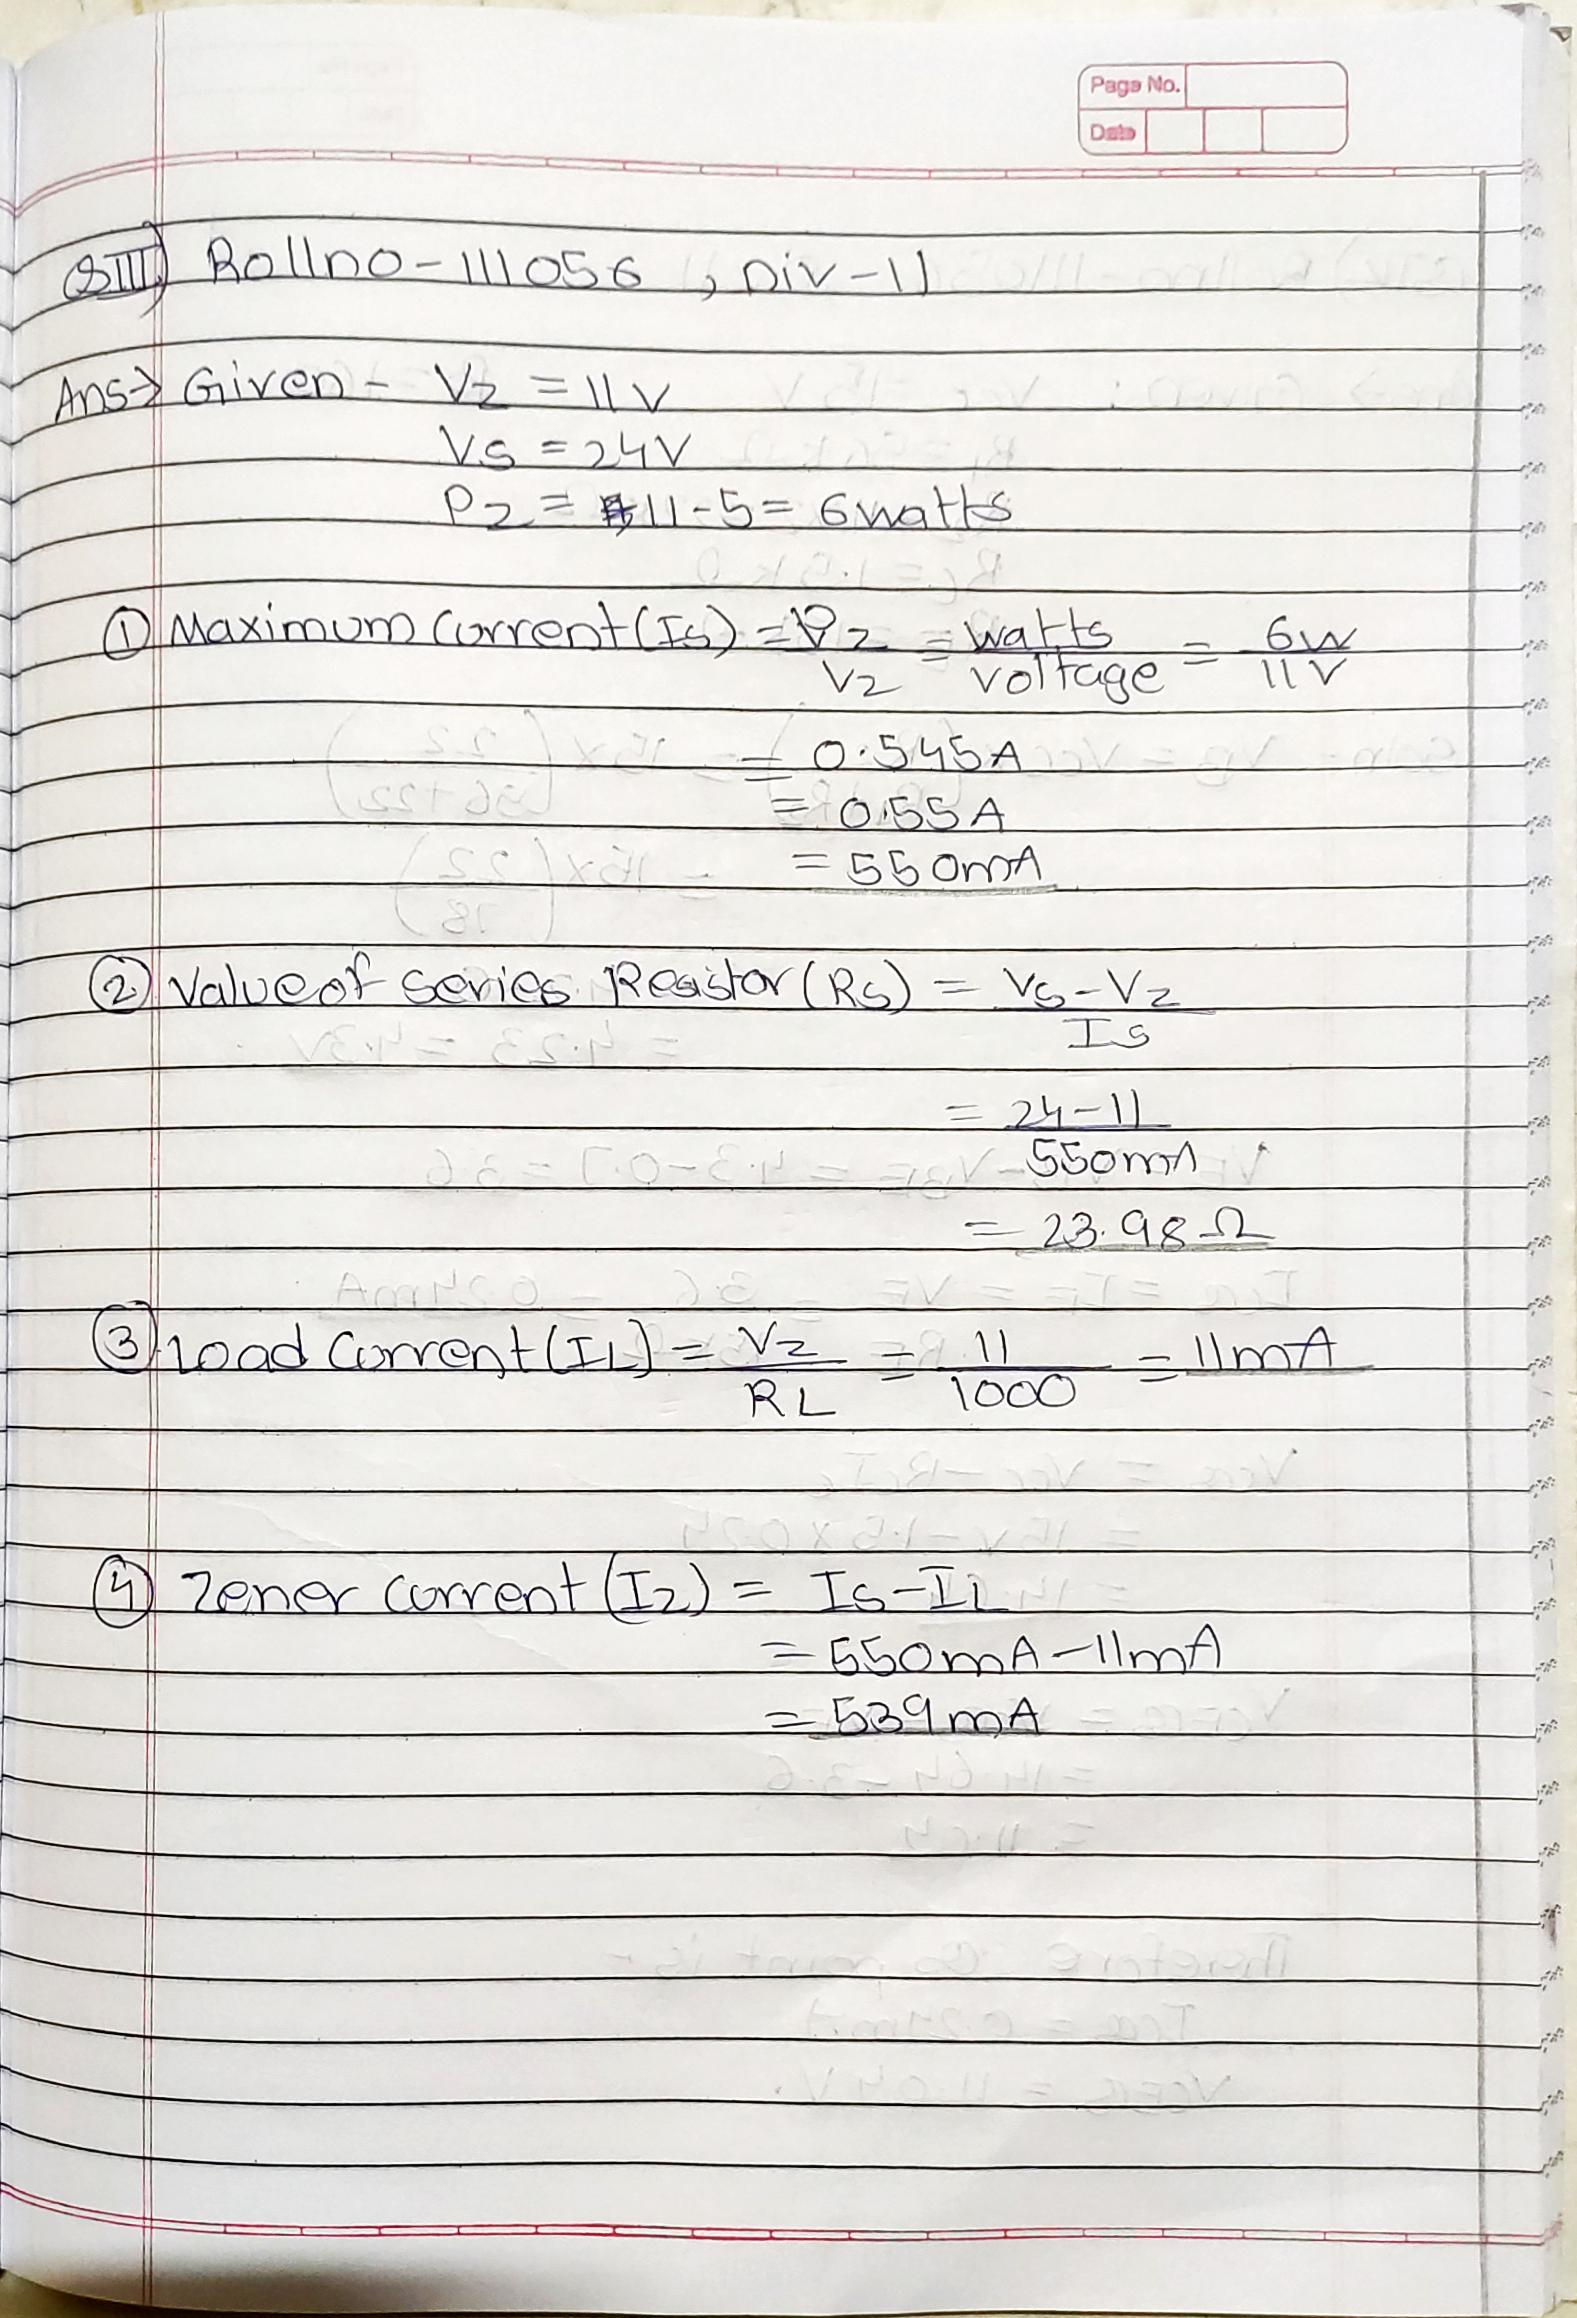 Page No.
Date
QIII) Rollno-111056 , Div-11
Ans→ Given - Vz = 11V
Vs = 24V
Pz = 11-5 = 6watts
① Maximum current (Is) = Pz/Vz = watts/voltage = 6W/11V
= 0.545A
= 0.55A
= 550mA
② Value of series Resistor (Rs) = Vs-Vz/Is
= 24-11/550mA
= 23.98Ω
③ Load current (IL) = Vz/RL = 11/1000 = 11mA
④ Zener current (Iz) = Is-IL
= 550mA-11mA
= 539mA